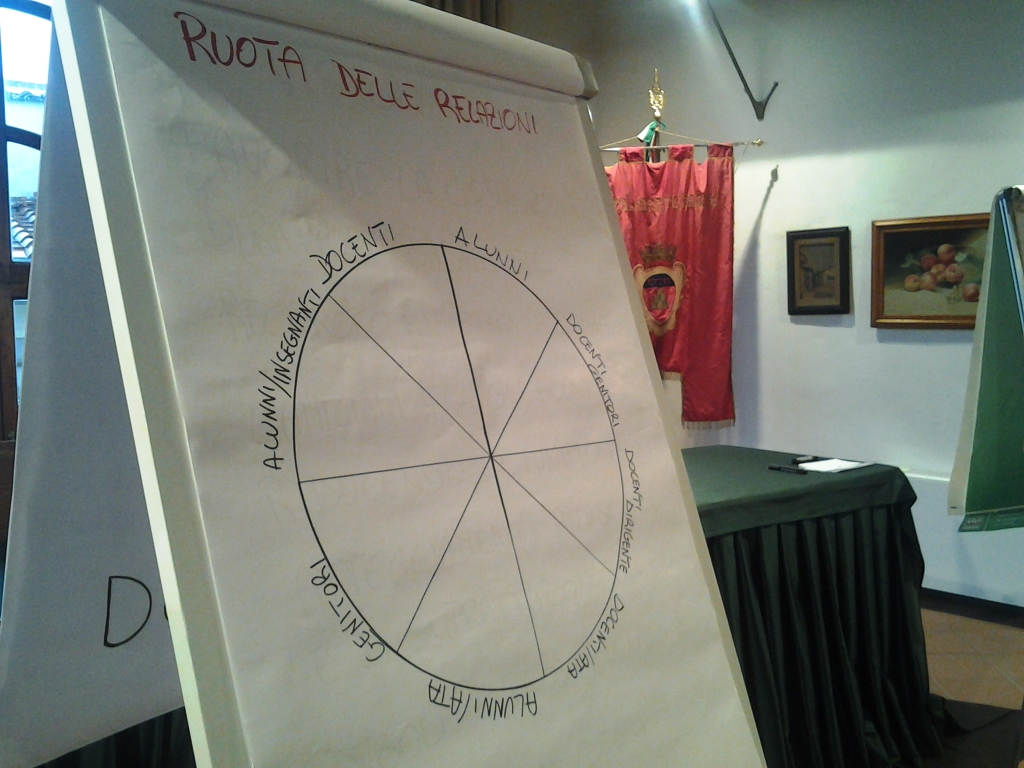 RUOTA DELLE RELAZIONI
DOCENTI
ALUNNI
DOCENTI/GENITORI
DOCENTI/DIRIGENTE
DOCENTI/ATA
ALUNNI/ATA
GENITORI
ALUNNI/INSEGNANTI
D